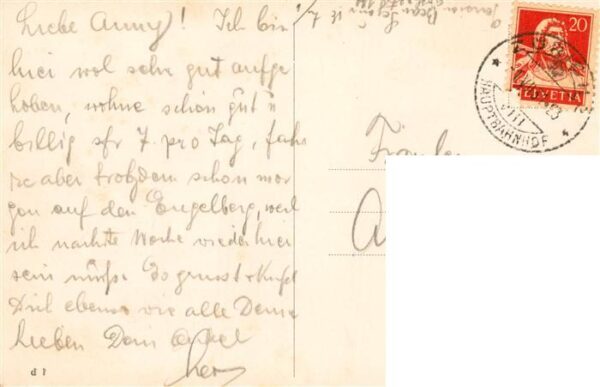 Liebe Anny! Ich bin
hier wol sehr gut aufge
hoben, wohne schön gut u
billig sfr 7. pro Tag, fah
re aber trotzdem schon mor
gen auf den Engelberg, weil
ich nächste Woche wieder hier
sein muss. Es grüsst + küsst
Dich ebenso wie alle Deine
Lieben Dein Onkel
d 1
Pension
20
HELVETIA
VIII
HAUPTBAHNHOF
Fräulein
A